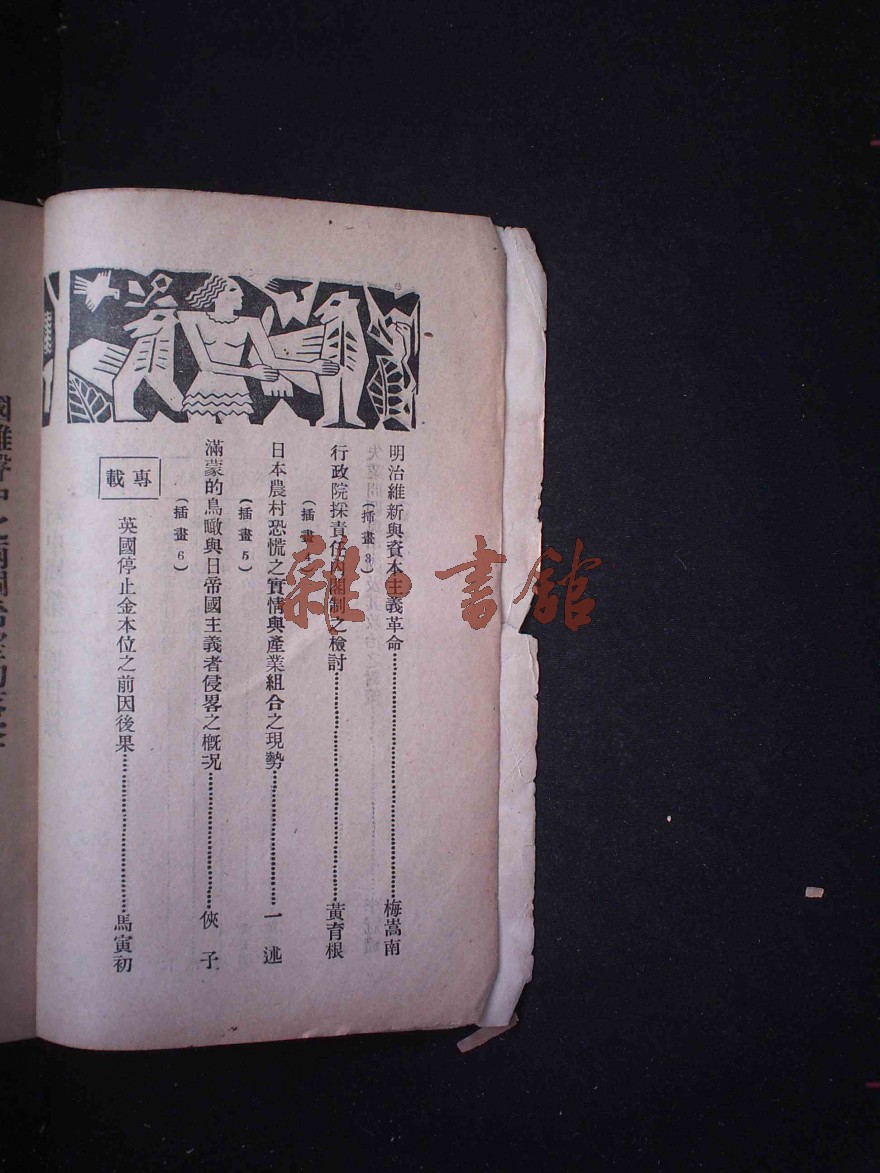 明治維新與資本主義革命……梅嵩南
(插畫3)
行政院採責任內閣制之檢討……黃育根
(插畫4)
日本農村恐慌之實情與產業組合之現勢……一 述
(插畫5)
滿蒙的鳥瞰與日帝國主義者侵畧之概況……俠 子
(插畫6)
專載
英國停止金本位之前因後果……馬寅初
雜·書館